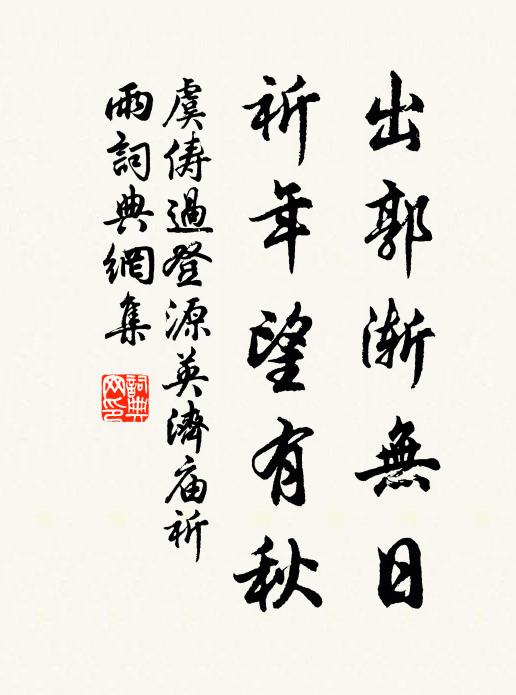 出郭漸無日
祈年望有秋
虞儔過登源英濟庙祈
雨詞典網集
詞典
网印